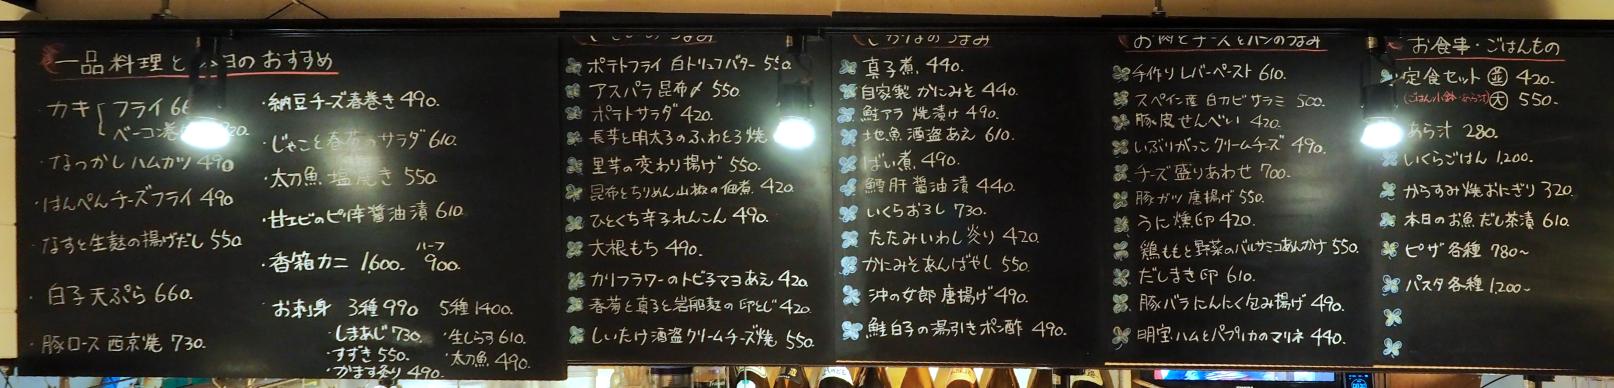 一品料理と のおすすめ
・カキ フライ
ベーコン巻
・なつかしハムカツ 490
・はんぺんチーズフライ 490
・なすと生麩の揚げだし 550
・白子天ぷら 660.
・豚ロース西京焼 730.
・納豆チーズ春巻き 490.
・じゃこと春菊のサラダ 610.
・太刀魚塩焼き 550
・甘エビのピリ辛醤油漬 610.
・香箱カニ 1,600. ハーフ 900.
・お刺身 3種 990 5種 1400.
・しまあじ 730. ・生しらす 610.
・すずき 550. ・太刀魚 490.
・かます炙り 490.
ポテトフライ 白トリュフバター 550
アスパラ昆布〆 550
ポテトサラダ 420.
長芋と明太子のふわとろ焼
里芋の変わり揚げ 550.
昆布とちりめん山椒の佃煮 420
ひとくち辛子れんこん 490.
大根もち 490.
カリフラワーのトビ子マヨあえ 420
春菊と真子と岩船麩の卵とじ 420
しいたけ酒盗クリームチーズ焼 550.
さかなのつまみ
真子煮 440.
自家製かにみそ 440.
鮭アラ焼漬け 490.
地魚酒盗あえ 610.
ばい煮 490.
鱈肝醤油漬 440.
いくらおろし 730.
たたみいわし炙り 420.
かにみそあんばやし 550.
沖の女郎唐揚げ 490.
鮭白子の湯引きポン酢 490.
お肉とチーズとパンのつまみ
手作りレバーペースト 610.
スペイン産白カビサラミ 500.
豚皮せんべい 420.
いぶりがっこクリームチーズ 490.
チーズ盛りあわせ 700.
豚ガツ唐揚げ 550.
うに燻卵 420.
鶏ももと野菜のバルサミコあんかけ 550.
だしまき卵 610.
豚バラにんにく包み揚げ 490.
明宝ハムとパプリカのマリネ 440.
お食事・ごはんもの
定食セット 並 420.
(ごはん・小鉢・あら汁) 大 550.
あら汁 280.
いくらごはん 1,200.
からすみ焼おにぎり 320.
本日のお魚だし茶漬 610.
ピザ各種 780~
パスタ各種 1,200~